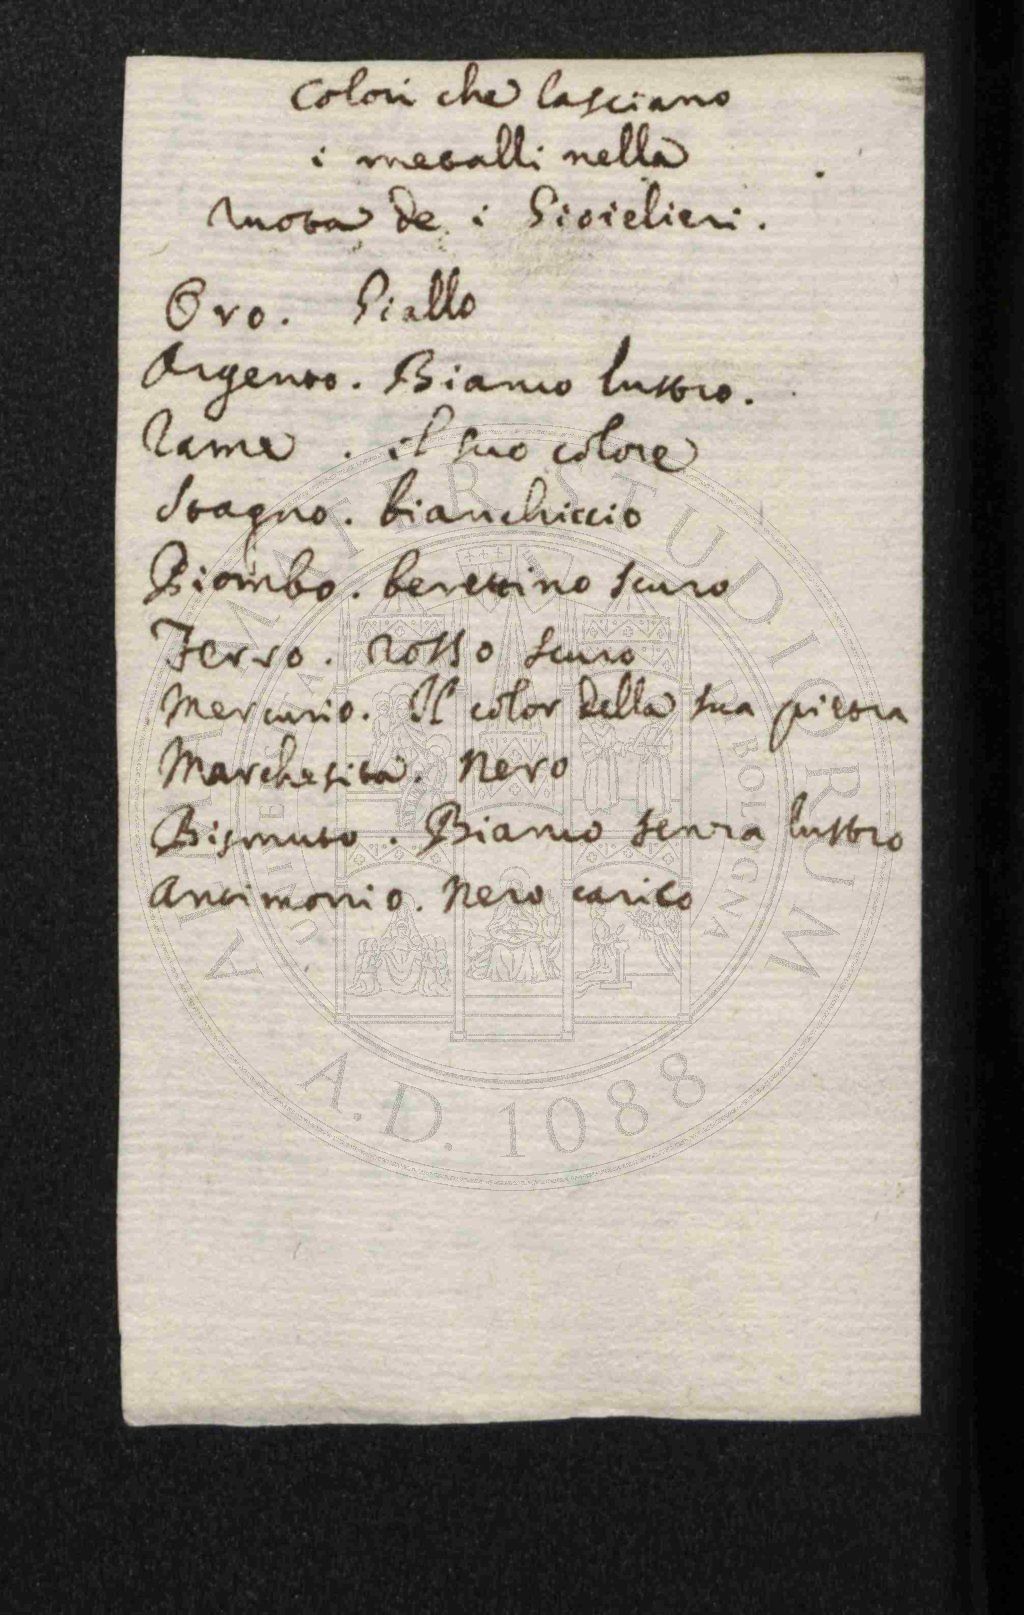 Colori che lasciano
i metalli nella
ruota de i Gioielieri.
Oro. Giallo
Argento. Bianco lustro.
Rame. il suo colore
Stagno. bianchiccio
Piombo. berettino scuro
Ferro. rosso scuro
Mercurio. Il color della sua pietra
Marchesita. Nero
Bismuto. Bianco senza lustro
Antimonio. Nero carico
ALMA MATER STUDIORUM
UNIVERSITA DI BOLOGNA
A.D. 1088